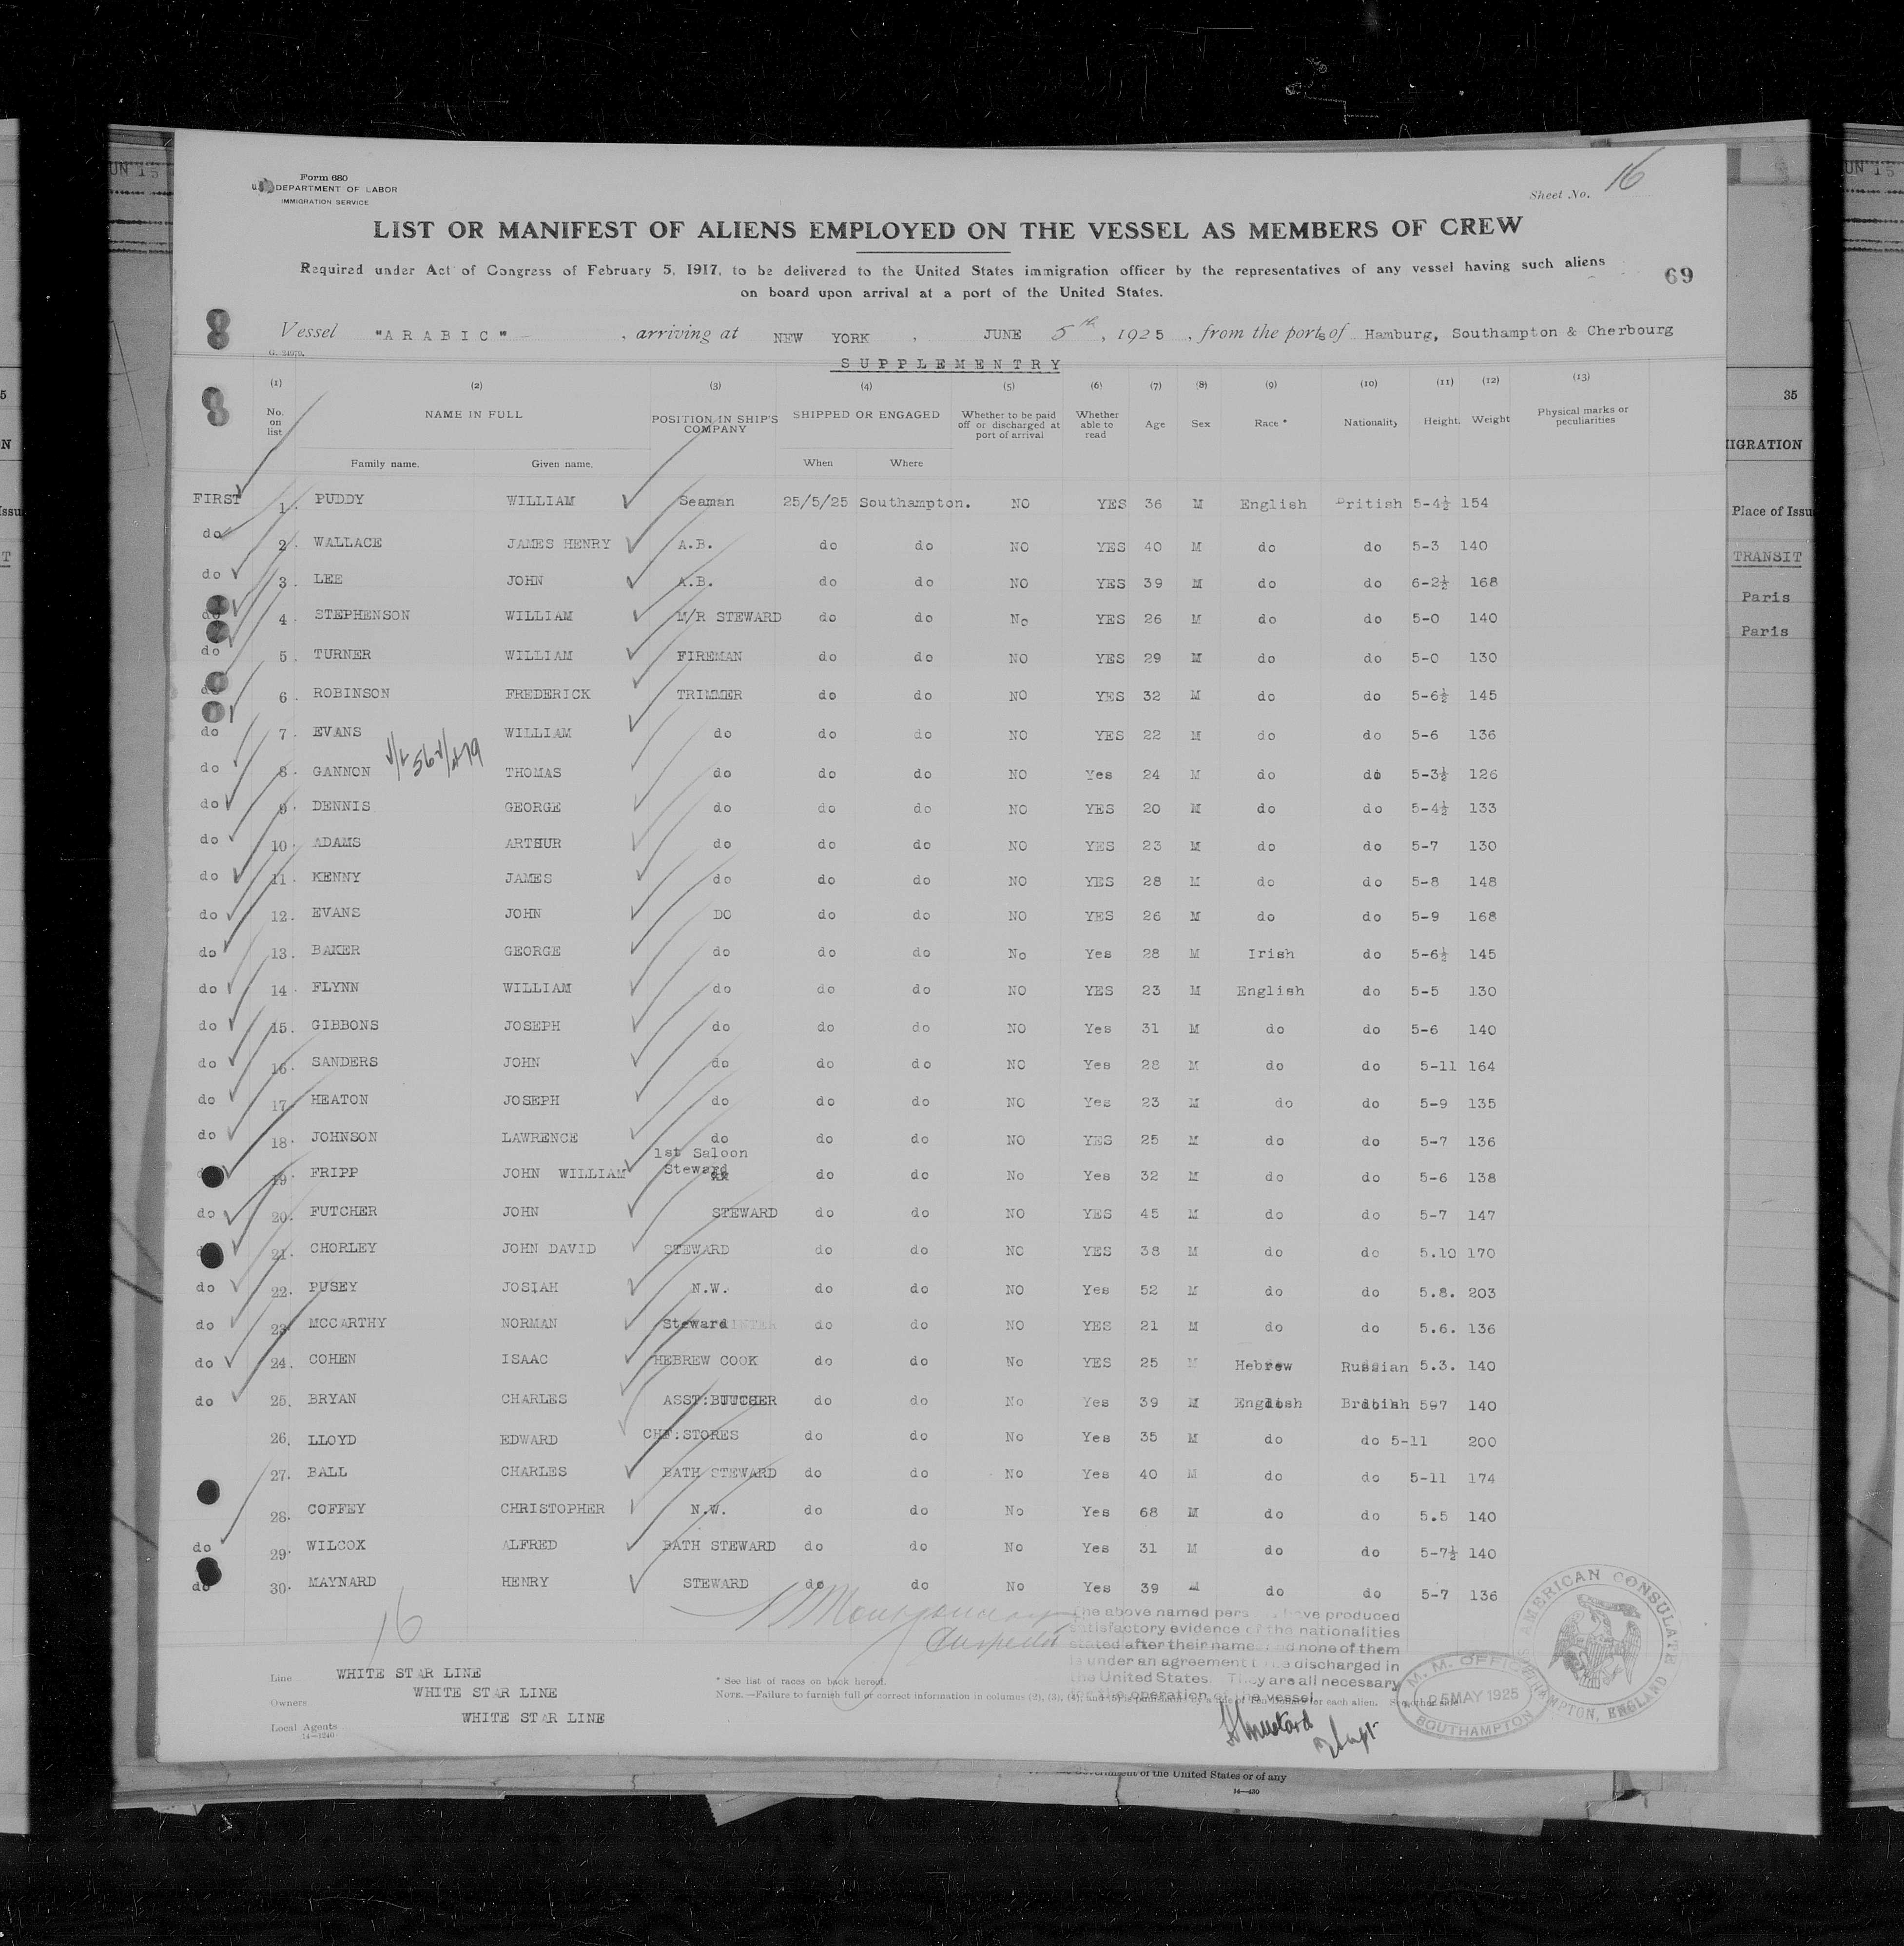 UN 15
UN 15
Form 680
DEPARTMENT OF LABOR
IMMIGRATION SERVICE
Sheet No. 16
LIST OR MANIFEST OF ALIENS EMPLOYED ON THE VESSEL AS MEMBERS OF CREW
Required under Act of Congress of February 5, 1917, to be delivered to the United States immigration officer by the representatives of any vessel having such aliens
on board upon arrival at a port of the United States.
69
Vessel "ARABIC" , arriving at NEW YORK , JUNE 5th, 1925 , from the ports of Hamburg, Southampton & Cherbourg
G. 24979.
SUPPLEMENTRY
(1) (2) (3) (4) (5) (6) (7) (8) (9) (10) (11) (12) (13)
No. on list NAME IN FULL POSITION IN SHIP'S COMPANY SHIPPED OR ENGAGED Whether to be paid off or discharged at port of arrival Whether able to read Age Sex Race * Nationality Height Weight Physical marks or peculiarities
Family name. Given name. When Where
FIRST 1. PUDDY WILLIAM Seaman 25/5/25 Southampton. NO YES 36 M English British 5-4½ 154
do 2. WALLACE JAMES HENRY A.B. do do NO YES 40 M do do 5-3 140
do 3. LEE JOHN A.B. do do NO YES 39 M do do 6-2½ 168
do 4. STEPHENSON WILLIAM M/R STEWARD do do No YES 26 M do do 5-0 140
do 5. TURNER WILLIAM FIREMAN do do NO YES 29 M do do 5-0 130
do 6. ROBINSON FREDERICK TRIMMER do do NO YES 32 M do do 5-6½ 145
do 7. EVANS WILLIAM do do do NO YES 22 M do do 5-6 136
do 8. GANNON THOMAS do do do NO Yes 24 M do do 5-3½ 126
do 9. DENNIS GEORGE do do do NO YES 20 M do do 5-4½ 133
do 10. ADAMS ARTHUR do do do NO YES 23 M do do 5-7 130
do 11. KENNY JAMES do do do NO YES 28 M do do 5-8 148
do 12. EVANS JOHN DO do do NO YES 26 M do do 5-9 168
do 13. BAKER GEORGE do do do No Yes 28 M Irish do 5-6½ 145
do 14. FLYNN WILLIAM do do do NO YES 23 M English do 5-5 130
do 15. GIBBONS JOSEPH do do do NO Yes 31 M do do 5-6 140
do 16. SANDERS JOHN do do do NO Yes 28 M do do 5-11 164
do 17. HEATON JOSEPH do do do NO Yes 23 M do do 5-9 135
do 18. JOHNSON LAWRENCE do do do NO YES 25 M do do 5-7 136
19. FRIPP JOHN WILLIAM 1st Saloon Steward do do No Yes 32 M do do 5-6 138
do 20. FUTCHER JOHN STEWARD do do NO YES 45 M do do 5-7 147
21. CHORLEY JOHN DAVID STEWARD do do NO YES 38 M do do 5.10 170
do 22. PUSEY JOSIAH N.W. do do NO Yes 52 M do do 5.8. 203
do 23. MCCARTHY NORMAN Steward do do NO YES 21 M do do 5.6. 136
do 24. COHEN ISAAC HEBREW COOK do do No YES 25 M Hebrew Russian 5.3. 140
do 25. BRYAN CHARLES ASST:BUTCHER do do No Yes 39 M English British 5-7 140
26. LLOYD EDWARD CHF:STORES do do No Yes 35 M do do 5-11 200
27. BALL CHARLES BATH STEWARD do do No Yes 40 M do do 5-11 174
28. COFFEY CHRISTOPHER N.W. do do No Yes 68 M do do 5.5 140
do 29. WILCOX ALFRED BATH STEWARD do do No Yes 31 M do do 5-7½ 140
do 30. MAYNARD HENRY STEWARD do do No Yes 39 M do do 5-7 136
16
The above named pers have produced
satisfactory evidence of the nationalities
stated after their names and none of them
is under an agreement to be discharged in
the United States. They are all necessary
for the operation of the vessel
Line WHITE STAR LINE
Owners WHITE STAR LINE
Local Agents WHITE STAR LINE
14—1240
* See list of races on back hereof.
NOTE.—Failure to furnish full or correct information in columns (2), (3), (4), and (5) is for each alien.
M. M. OFFICE
25 MAY 1925
SOUTHAMPTON
AMERICAN CONSULATE
SOUTHAMPTON, ENGLAND
of the United States or of any
14—430
35
IGRATION
Place of Issu
TRANSIT
Paris
Paris